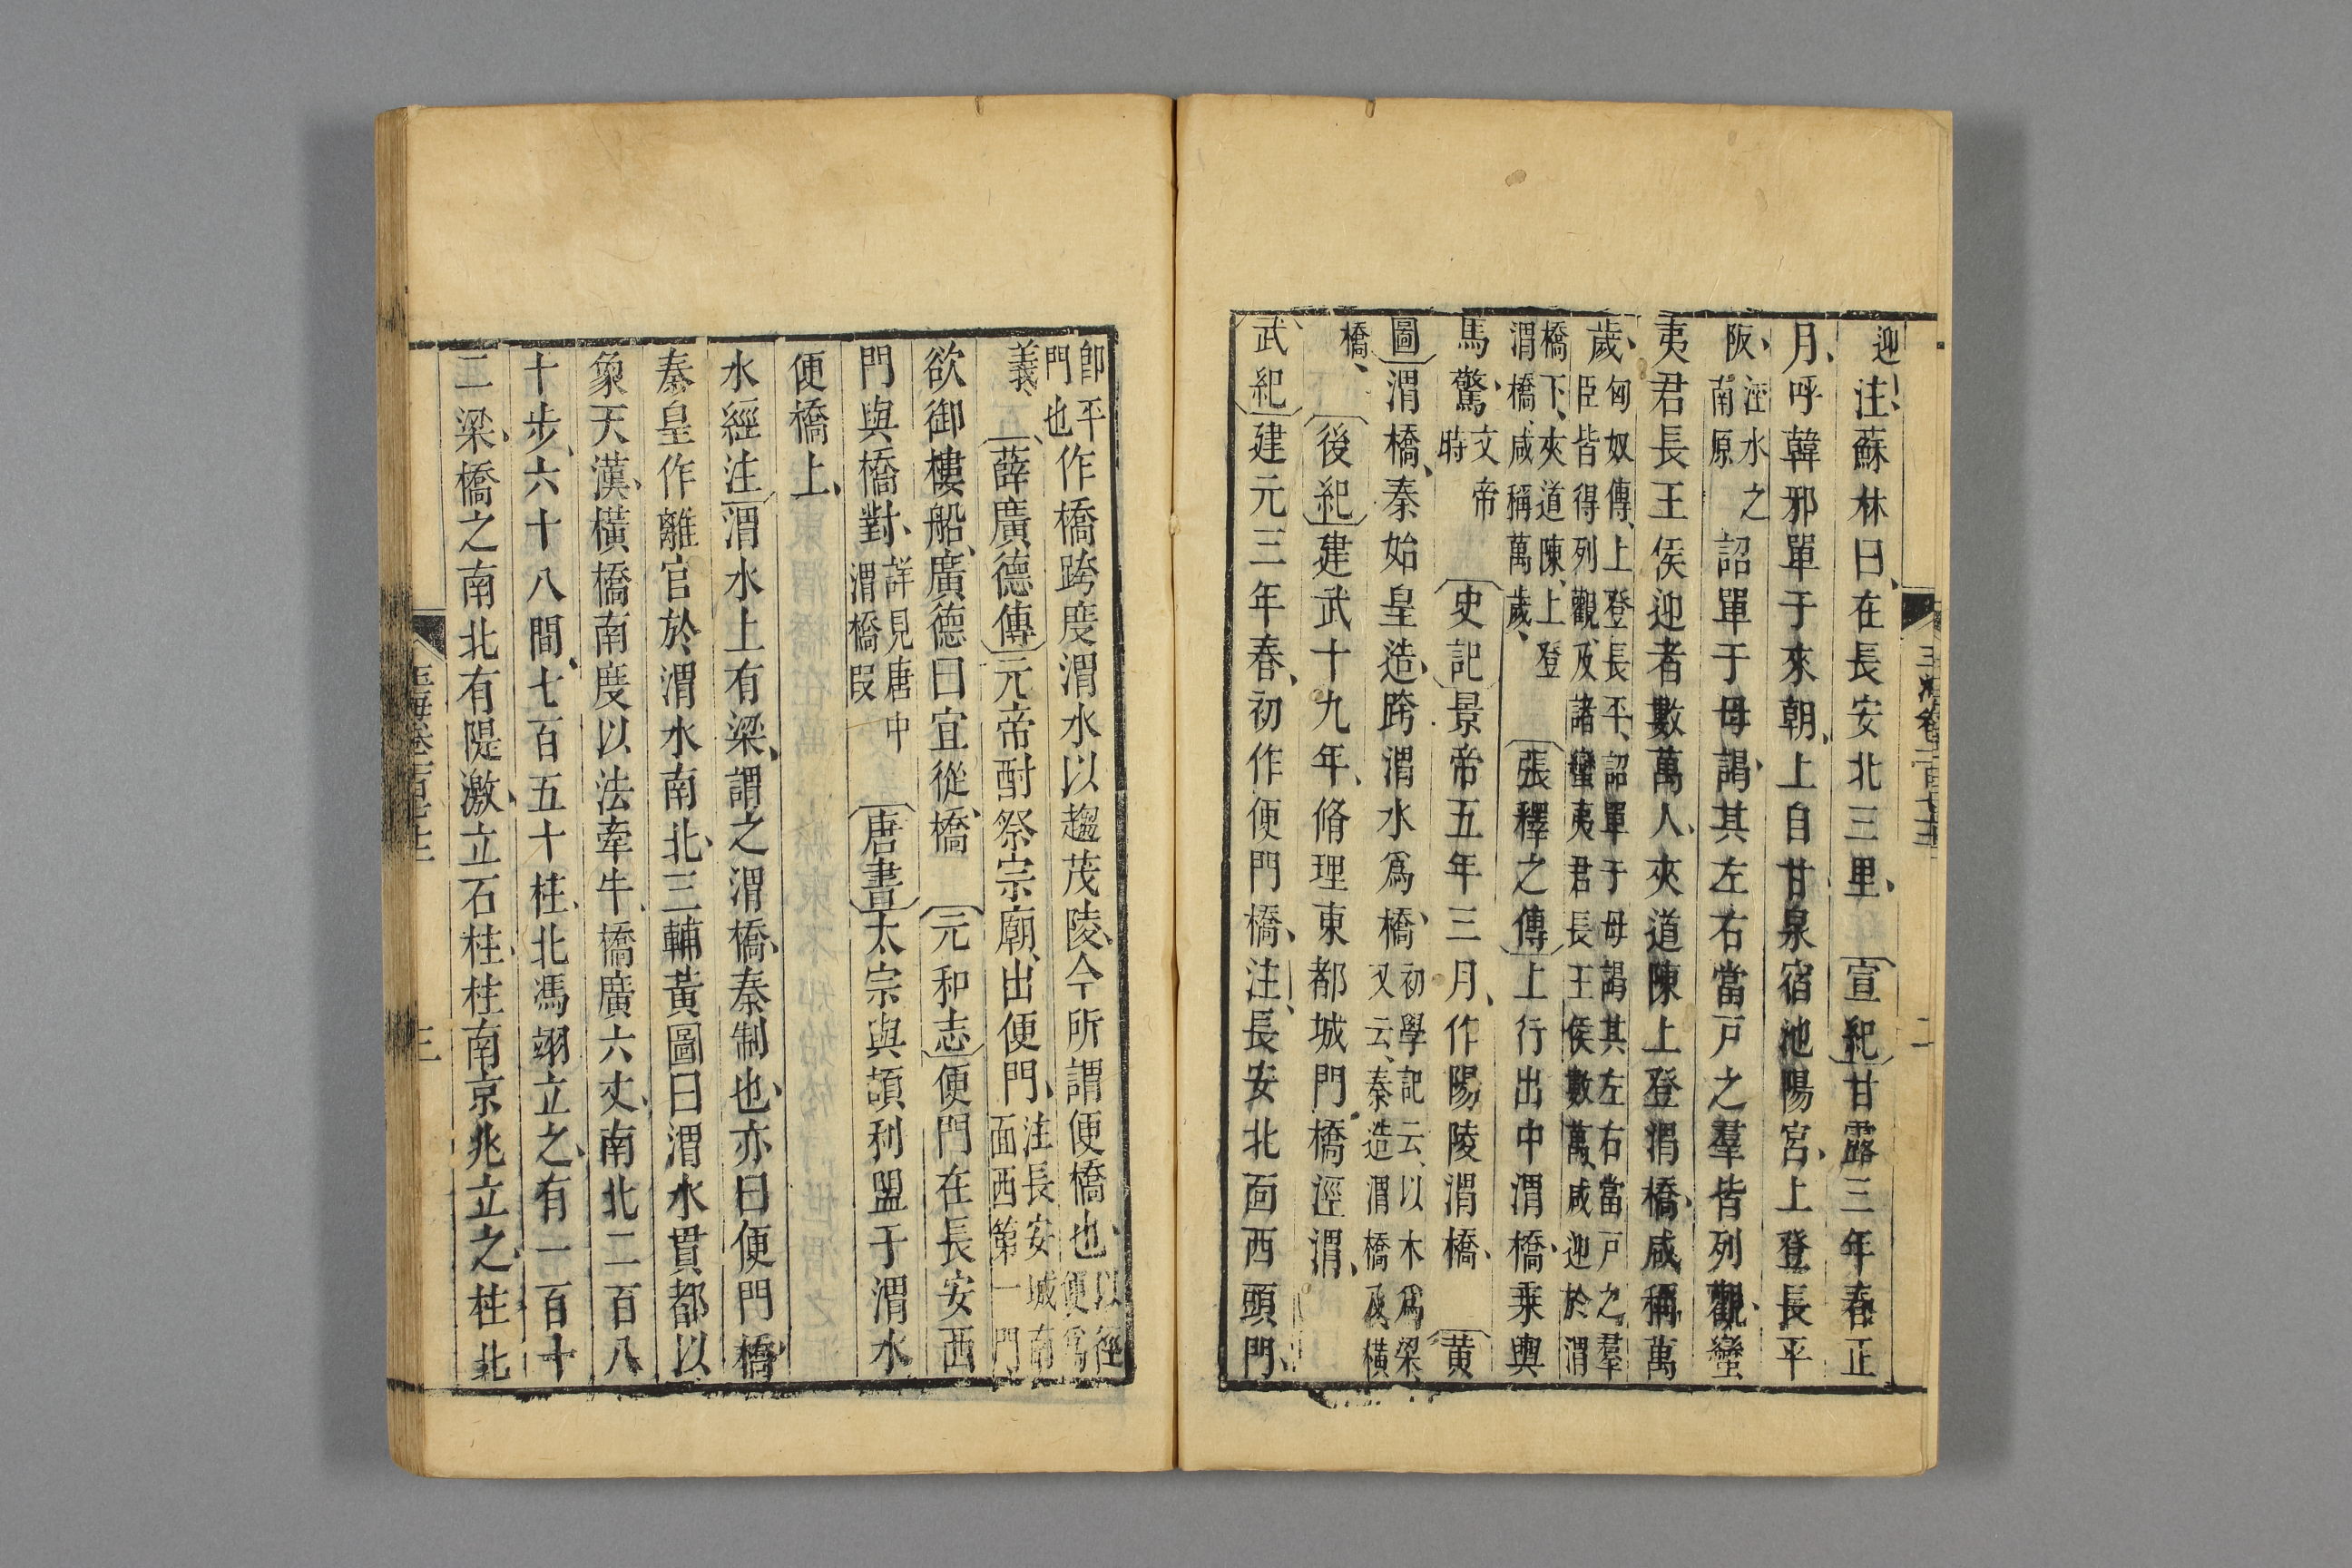 迎注蘇林曰在長安北三里宣紀甘露三年春正
月呼韓邪單于來朝上自甘泉宿池陽宮上登長平
阪涇水之南原詔單于母謁其左右當戶之羣皆列觀蠻
夷君長王侯迎者數萬人夾道陳上登渭橋咸稱萬
歲匈奴傳上登長平詔單于母謁其左右當戶之羣臣皆得列觀及諸蠻夷君長王侯數萬咸迎於渭
橋下夾道陳上登渭橋咸稱萬歲張釋之傳上行出中渭橋乗輿
馬驚文帝時史記景帝五年三月作陽陵渭橋黃
圖渭橋秦始皇造跨渭水爲橋初學記云以木爲梁又云秦造渭橋及橫
橋後紀建武十九年脩理東都城門橋涇渭
武紀建元三年春初作便門橋注長安北面西頭門
即平門也作橋跨度渭水以趨茂陵今所謂便橋也以徑便爲
義薛廣德傳元帝酎祭宗廟出便門注長安城南面西第一門
欲御樓船廣德曰宜從橋元和志便門在長安西
門與橋對詳見唐中渭橋段唐書太宗與頡利盟于渭水
便橋上
水經注渭水上有梁謂之渭橋秦制也亦曰便門橋
秦皇作離宮於渭水南北三輔黃圖曰渭水貫都以
象天漢橫橋南度以法牽牛橋廣六丈南北二百八
十步六十八間七百五十柱北馮翊立之有一百十
二梁橋之南北有隄激立石柱柱南京兆立之柱北